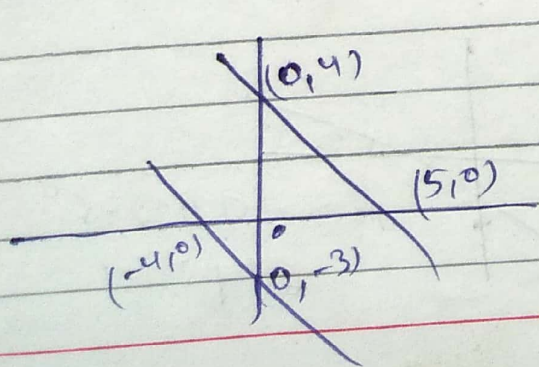 (0,4)
(5,0)
0
(-4,0)
(0,-3)